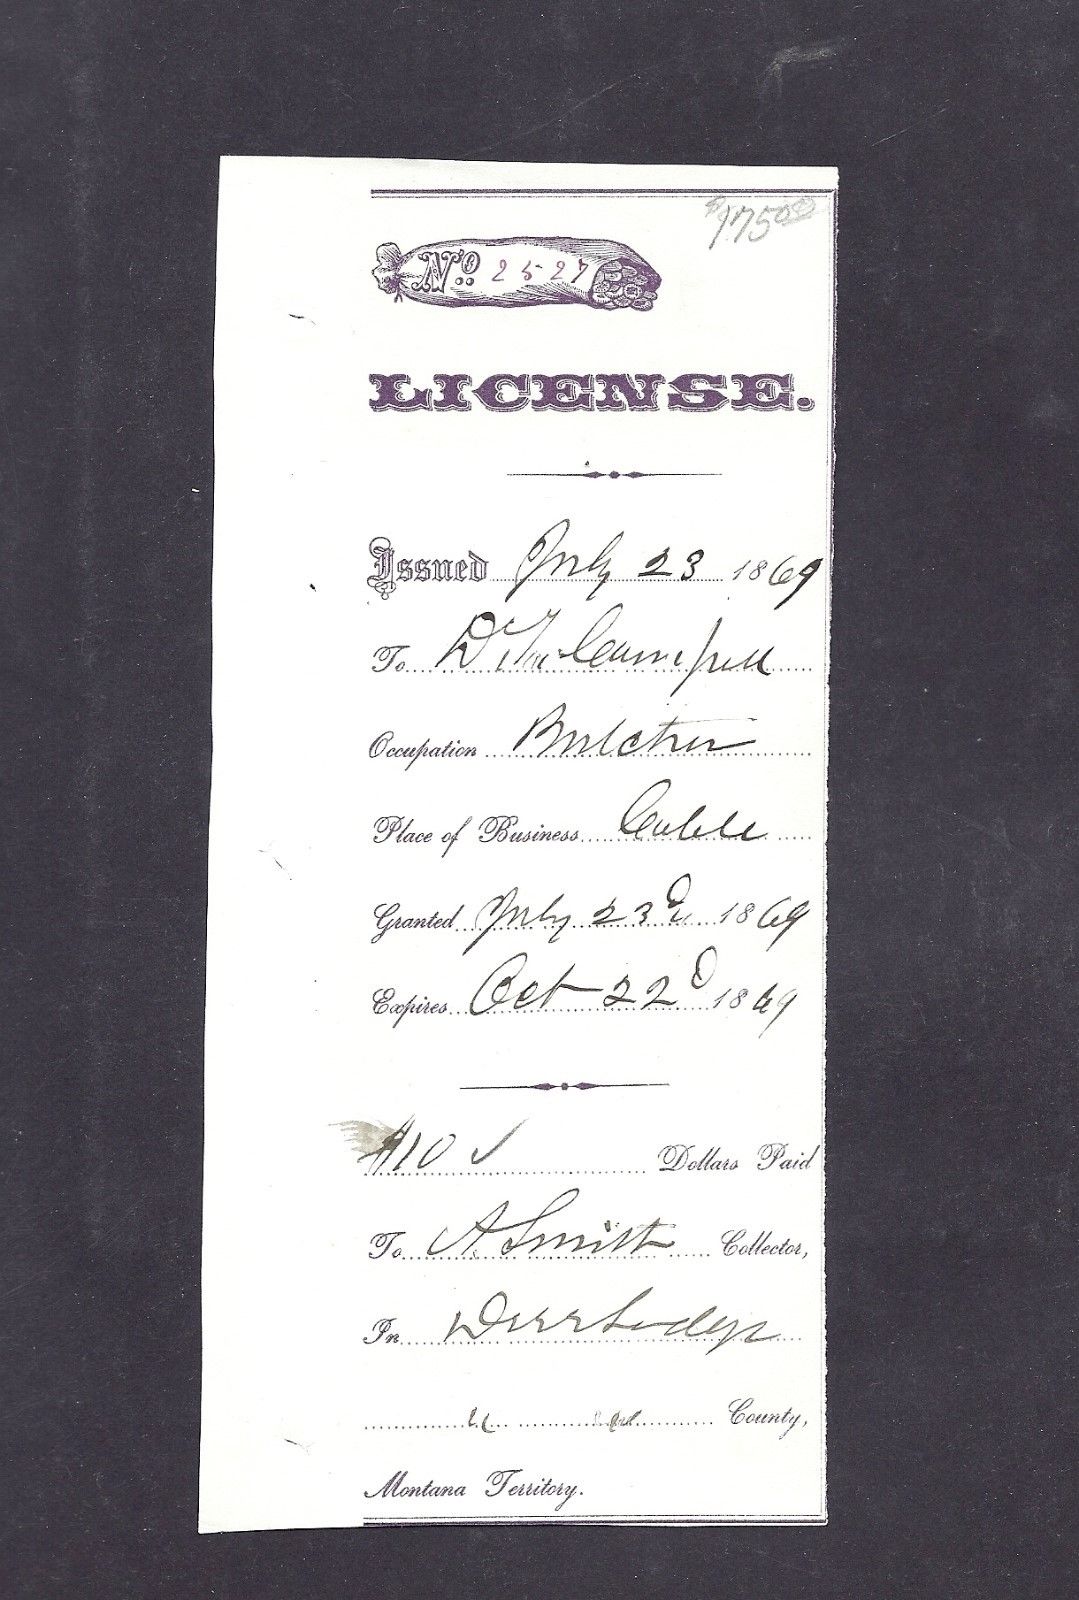 $17500
No. 2527
LICENSE.
Issued July 23 1869
To D. Mc Campbell
Occupation Butcher
Place of Business Cable
Granted July 23d 1869
Expires Oct 22d 1869
$10 Dollars Paid
To A. Smith Collector,
In Deer Lodge
" " County,
Montana Territory.